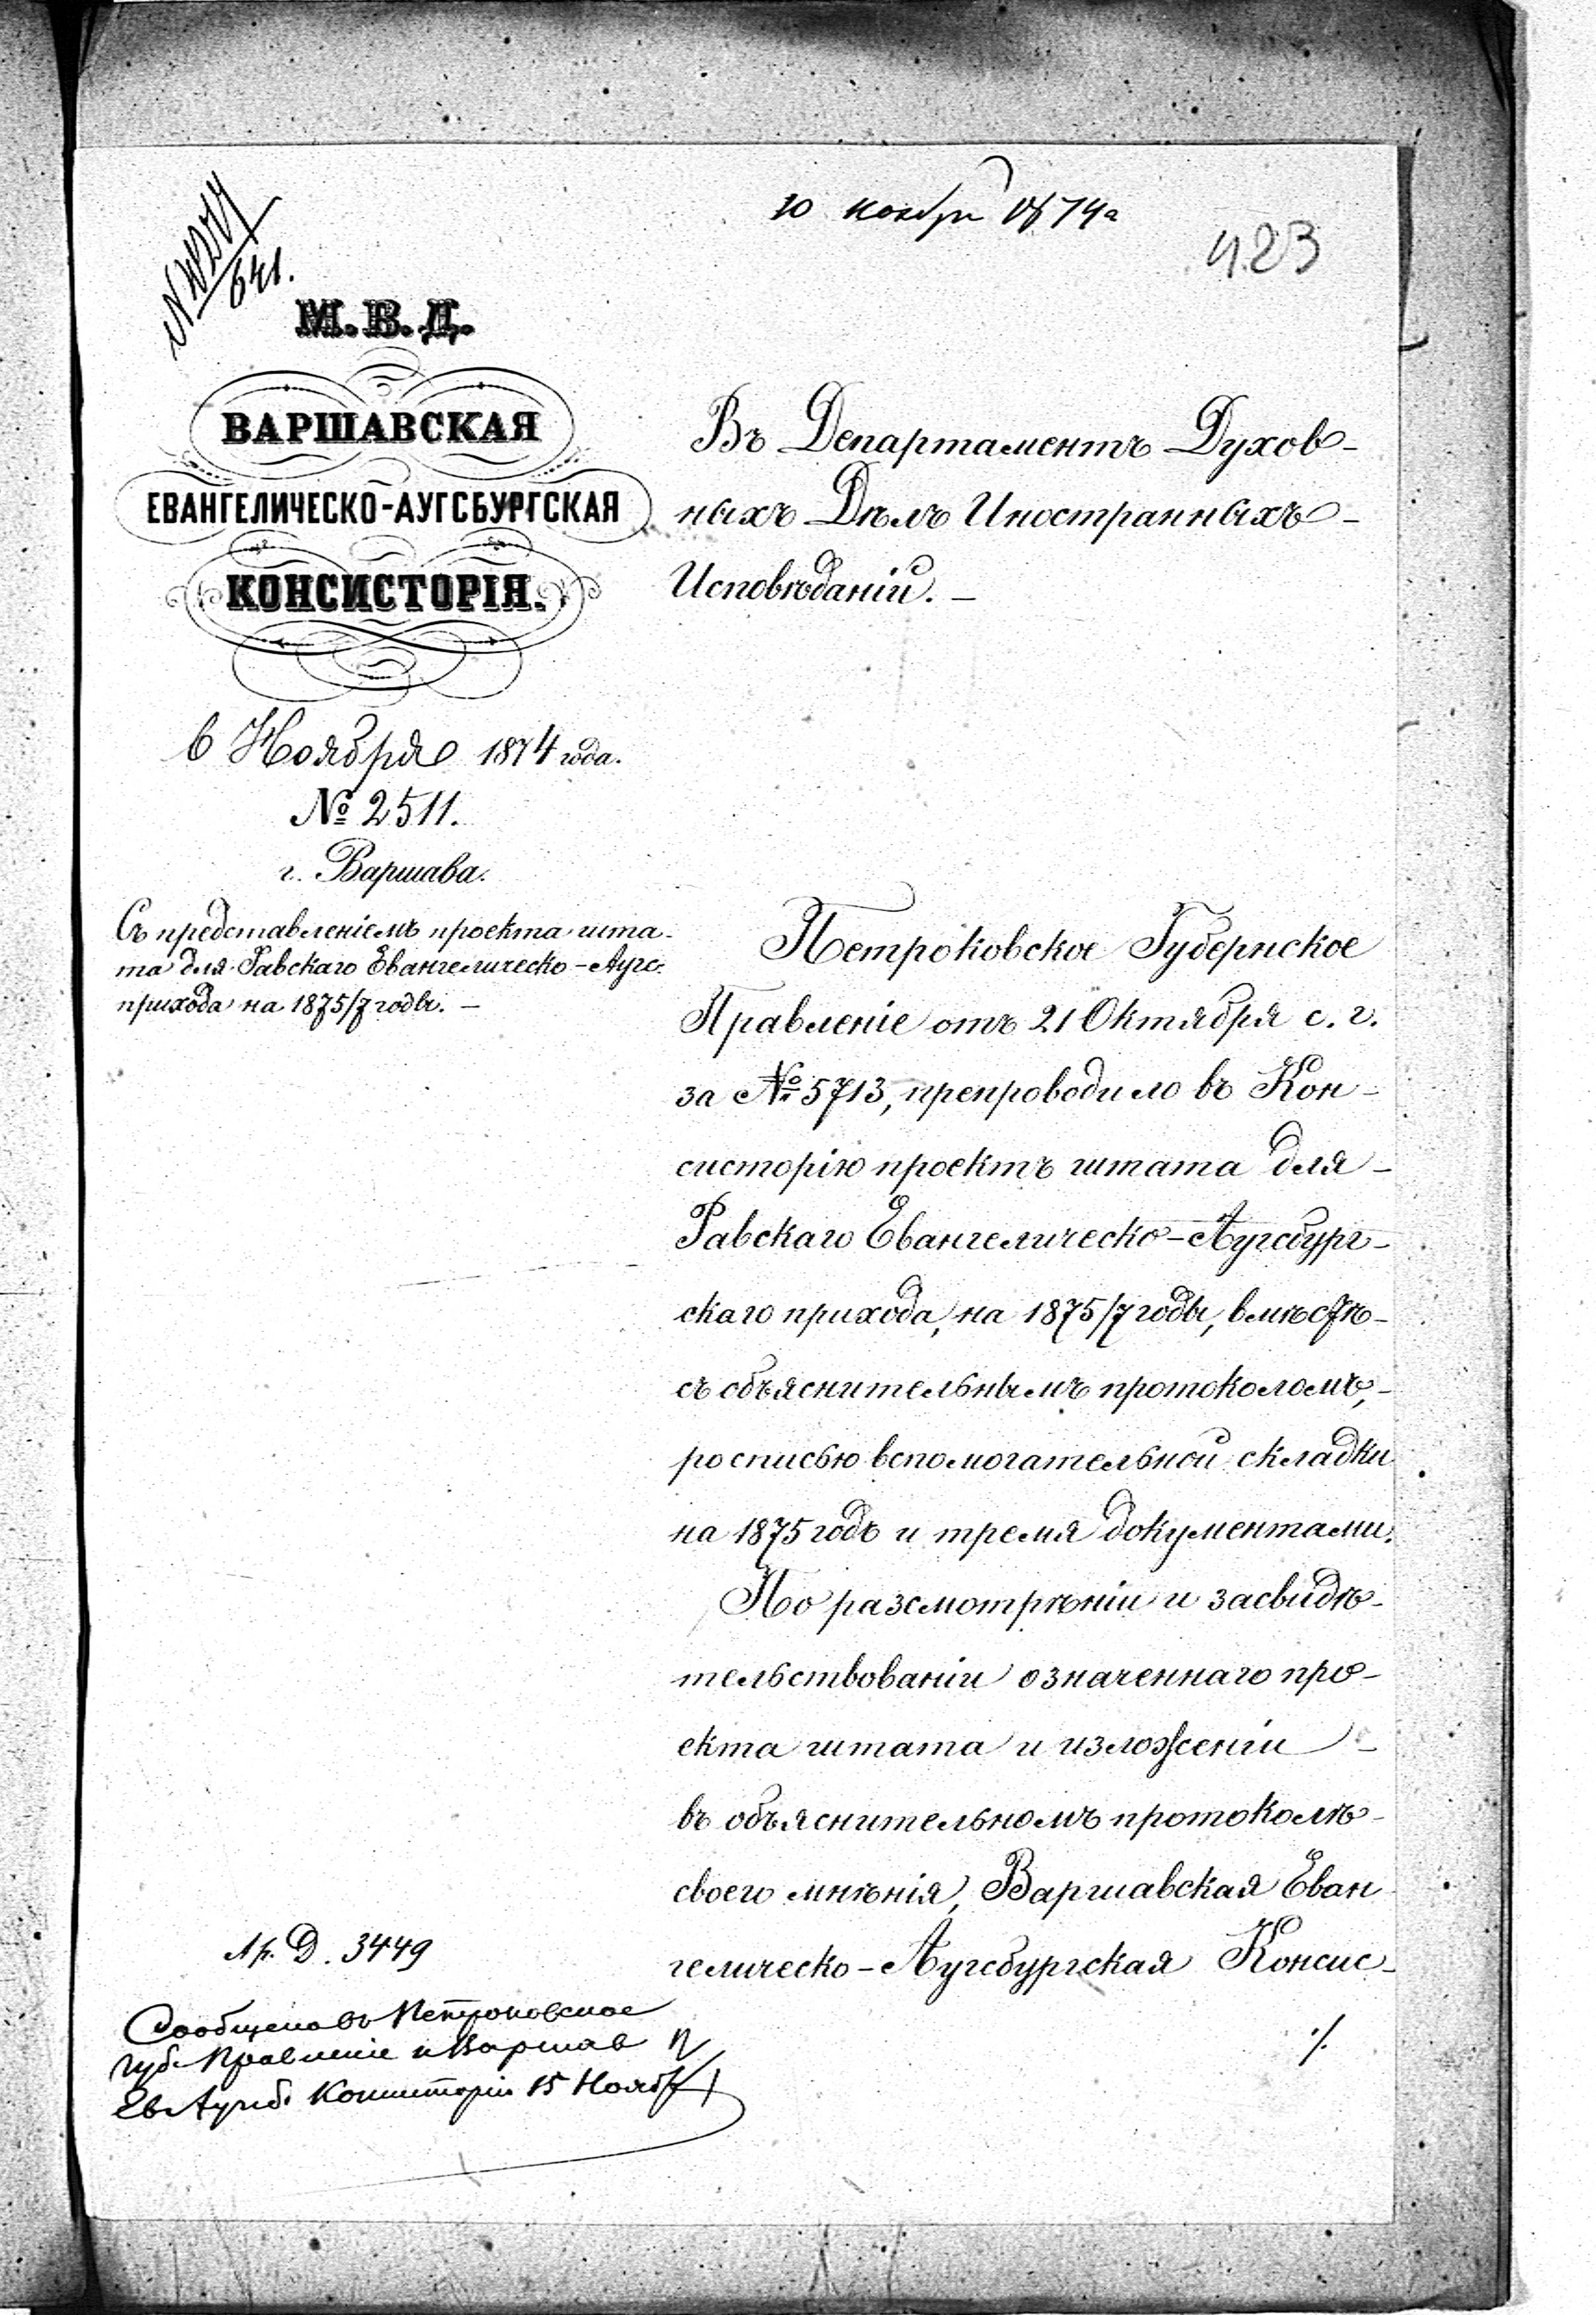 10 ноября 1874 г
423
641.
М. В. Д.
ВАРШАВСКАЯ
ЕВАНГЕЛИЧЕСКО-АУГСБУРГСКАЯ
КОНСИСТОРІЯ.
6 Ноября 1874 года.
№ 2511.
г. Варшава.
Съ представленіемъ проекта шта-
та для Равскаго Евангелическо-Аугс.
прихода на 1875/7 годы. —
Въ Департаментъ Духов-
ныхъ Дѣлъ Иностранныхъ-
Исповѣданій. —
Петроковское Губернское
Правленіе отъ 21 Октября с. г.
за № 5713, препроводило въ Кон-
систорію проектъ штата для-
Равскаго Евангелическо-Аугсбург-
скаго прихода, на 1875/7 годы, вмѣстѣ-
съ объяснительнымъ протоколомъ,-
росписью вспомогательной складки
на 1875 годъ и тремя документами.
По разсмотрѣніи и засвидѣ-
тельствованіи означеннаго про-
екта штата и изложеніи -
въ объяснительномъ протоколѣ-
своего мнѣнія, Варшавская Еван
гелическо-Аугсбургская Консис-
./.
Д. 3449
Сообщено въ Петроковское
Губ. Правленіе и Варшав
Ев. Аугсб. Консисторіи 15 Нояб